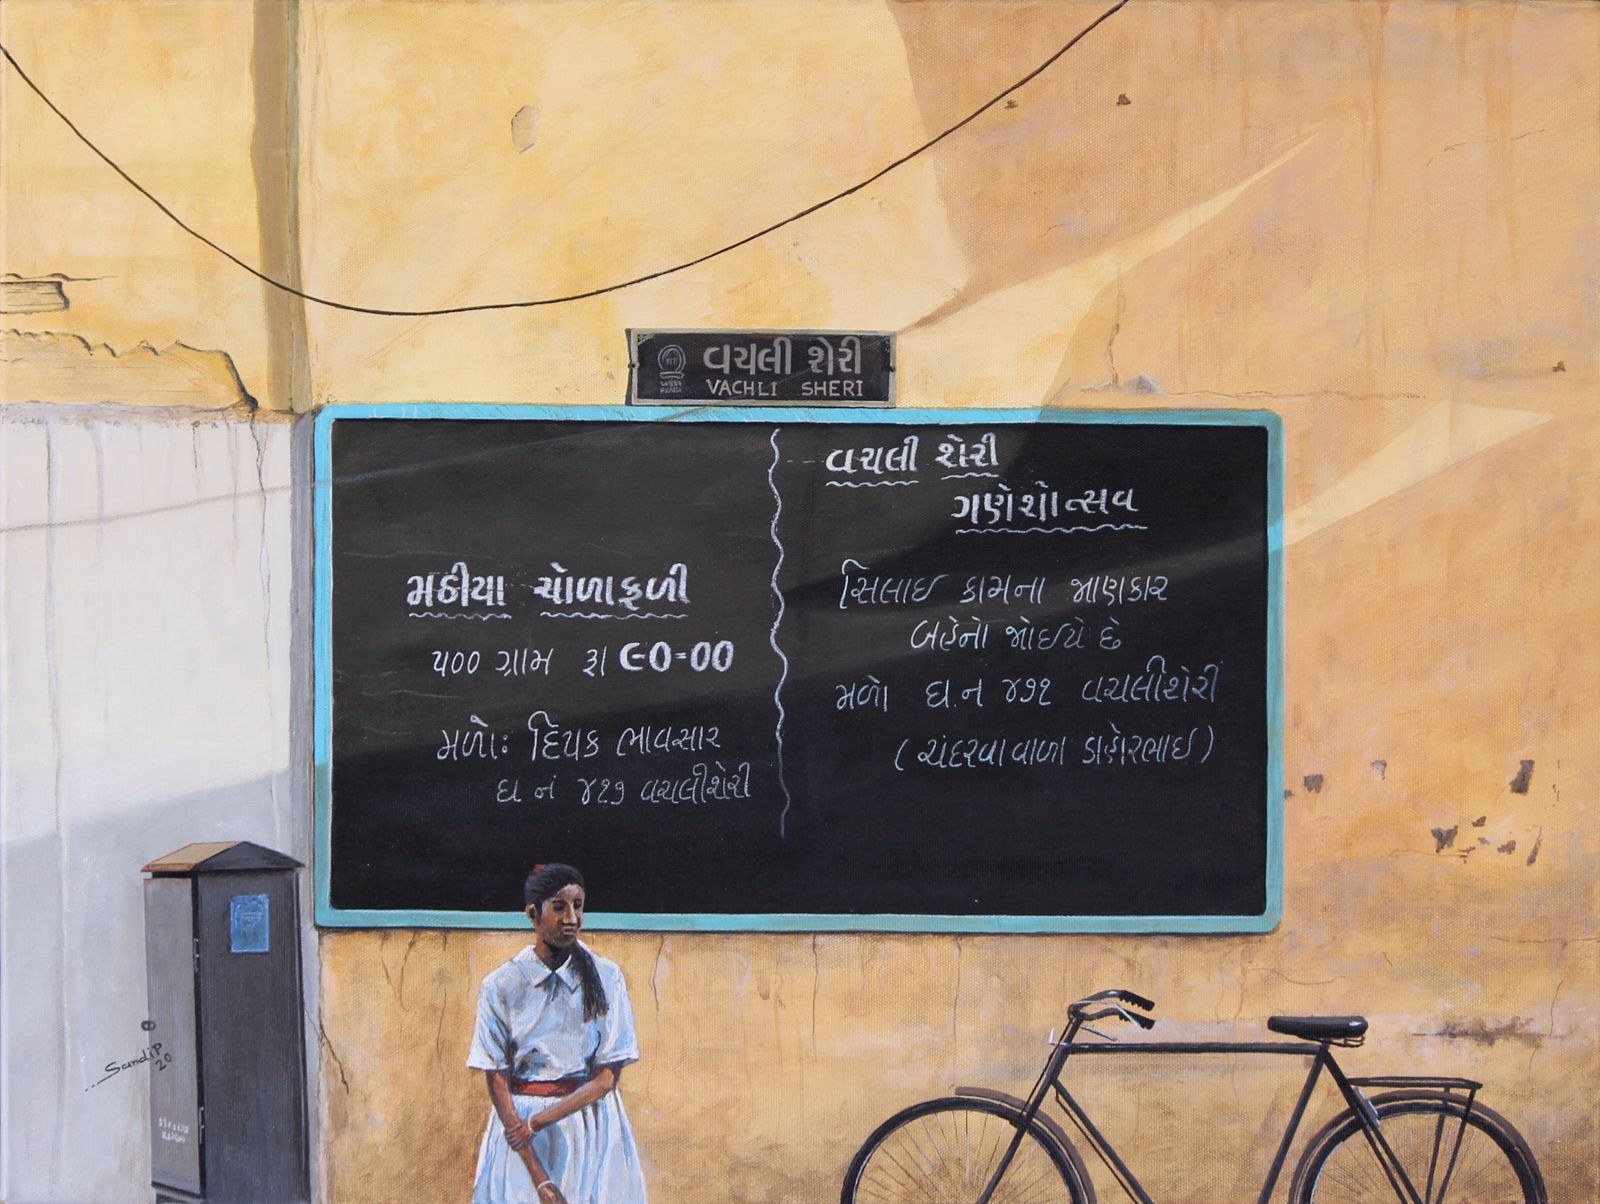 વચલી શેરી
VACHLI SHERI
મઠીયા ચોળાફળી
૫૦૦ ગ્રામ રૂા ૯૦=૦૦
મળોઃ દિપક ભાવસાર
ઘ નં ૪૨૭ વચલીશેરી
વચલી શેરી
ગણેશોત્સવ
સિલાઈ કામના જાણકાર
બહેનો જોઈયે છે
મળો ઘ.ન ૪૭૧ વચલીશેરી
(ચંદરવાવાળા ડાકોરભાઈ)
Sandip
20